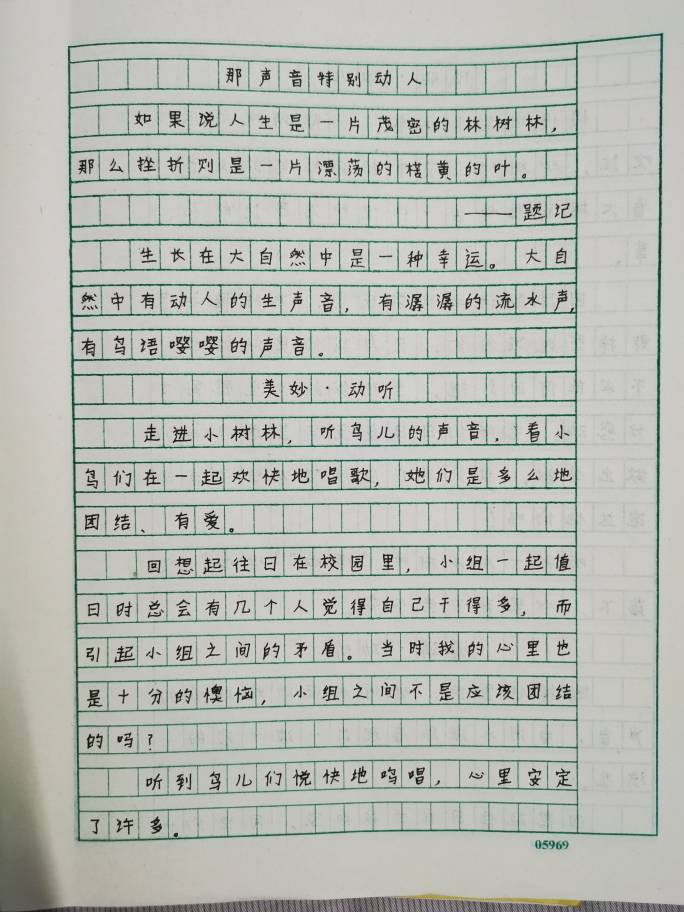 那声音特别动人
如果说人生是一片茂密的林树林，
那么挫折则是一片漂荡的枯黄的叶。
——题记
生长在大自然中是一种幸运。大自
然中有动人的生声音，有潺潺的流水声，
有鸟语嘤嘤的声音。
美妙·动听
走进小树林，听鸟儿的声音，看小
鸟们在一起欢快地唱歌，她们是多么地
团结、有爱。
回想起往日在校园里，小组一起值
日时总会有几个人觉得自己干得多，而
引起小组之间的矛盾。当时我的心里也
是十分的懊恼，小组之间不是应该团结
的吗？
听到鸟儿们悦快地鸣唱，心里安定
了许多。
05969